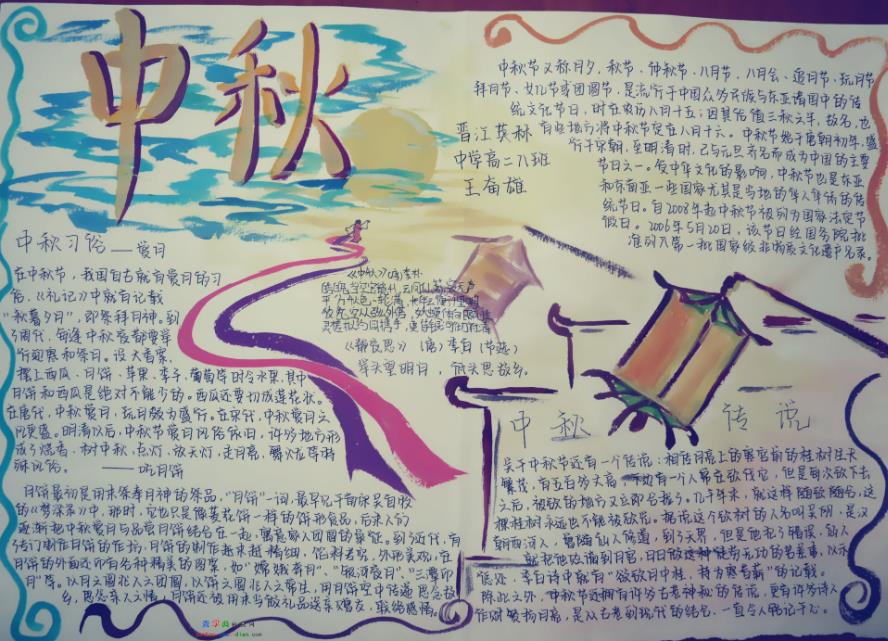 中秋
中秋节又称月夕、秋节、仲秋节、八月节、八月会、追月节、玩月节
拜月节、女儿节或团圆节,是流行于中国众多民族与东亚诸国中的传
统文化节日,时在农历八月十五;因其恰值三秋之半,故名,也
有些地方将中秋节定在八月十六。中秋节始于唐朝初年,盛
行于宋朝,至明清时,已与元旦齐名而成为中国的主要
节日之一。受中华文化的影响,中秋节也是东亚
和东南亚一些国家尤其是当地的华人华侨的传
统节日。自2008年起中秋节被列为国家法定节
假日。2006年5月20日,该节日经国务院批
准列入第一批国家级非物质文化遗产名录。
晋江英林
中学高二八班
王奋雄
中秋习俗——赏月
在中秋节,我国自古就有赏月的习
俗,《礼记》中就有记载
“秋暮夕月”,即祭拜月神。到
了周代,每逢中秋夜都要举
行迎寒和祭月。设大香案,
摆上西瓜、月饼、苹果、李子、葡萄等时令水果,其中
月饼和西瓜是绝对不能少的。西瓜还要切成莲花状。
在唐代,中秋赏月、玩月颇为盛行。在宋代,中秋赏月之
风更盛。明清以后,中秋节赏月风俗依旧,许多地方形
成了烧香、树中秋、点灯、放天灯、走月亮、舞火龙等特
殊风俗。 ——吃月饼
月饼最初是用来祭奉月神的祭品,“月饼”一词,最早见于南宋吴自牧
的《梦粱录》中,那时,它也只是像菱花饼一样的饼形食品,后来人们
逐渐把中秋赏月与品尝月饼结合在一起,寓意家人团圆的象征。到了近代,有
了专门制作月饼的作坊,月饼的制作越来越精细,馅料考究,外形美观,在
月饼的外面还印有各种精美的图案,如“嫦娥奔月”、“银河夜月”、“三潭印
月”等。以月之圆兆人之团圆,以饼之圆兆人之常生,用月饼
《中秋》(唐)李朴
《静夜思》(唐)李白(节选)
举头望明月,低头思故乡。
中秋传说
关于中秋节还有一个传说:相传月亮上的广寒宫前的桂树生长
繁茂,有五百多丈高
有一个人常在砍伐它,但是每次砍下去
之后,被砍的地方又立即合拢了。几千年来,就这样随砍随合,这
棵桂树永远也不能被砍光。据说这个砍树的人名叫吴刚,是汉
朝西河人,曾跟随仙人修道,到了天界,但是他犯了错误,仙人
就把他贬谪到月宫,日日做这种徒劳无功的苦差事,以示
惩处。李白诗中就有“欲斫月中桂,持为寒者薪”的记载。
除此之外,中秋节还拥有许多古老神秘的传说,更有许多诗人